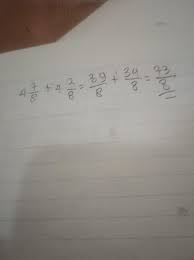 4 7/8 + 4 2/8 = 39/8 + 34/8 = 73/8